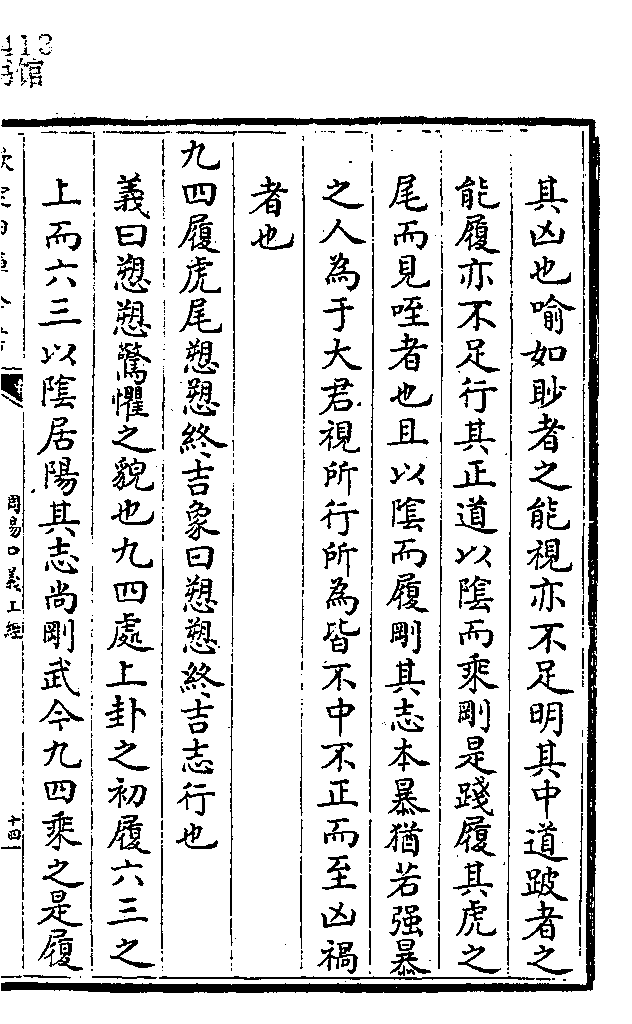 其凶也喻如眇者之能視亦不足明其中道跛者之
能履亦不足行其正道以隂而乘剛是踐履其虎之
尾而見咥者也且以隂而履剛其志本暴猶若强暴
之人為于大君視所行所為皆不中不正而至凶禍
者也
九四履虎尾愬愬終吉象曰愬愬終吉志行也
義曰愬愬驚懼之貌也九四處上卦之初履六三之
上而六三以隂居陽其志尚剛武今九四乘之是履
周易口義上經
十四
413
馆